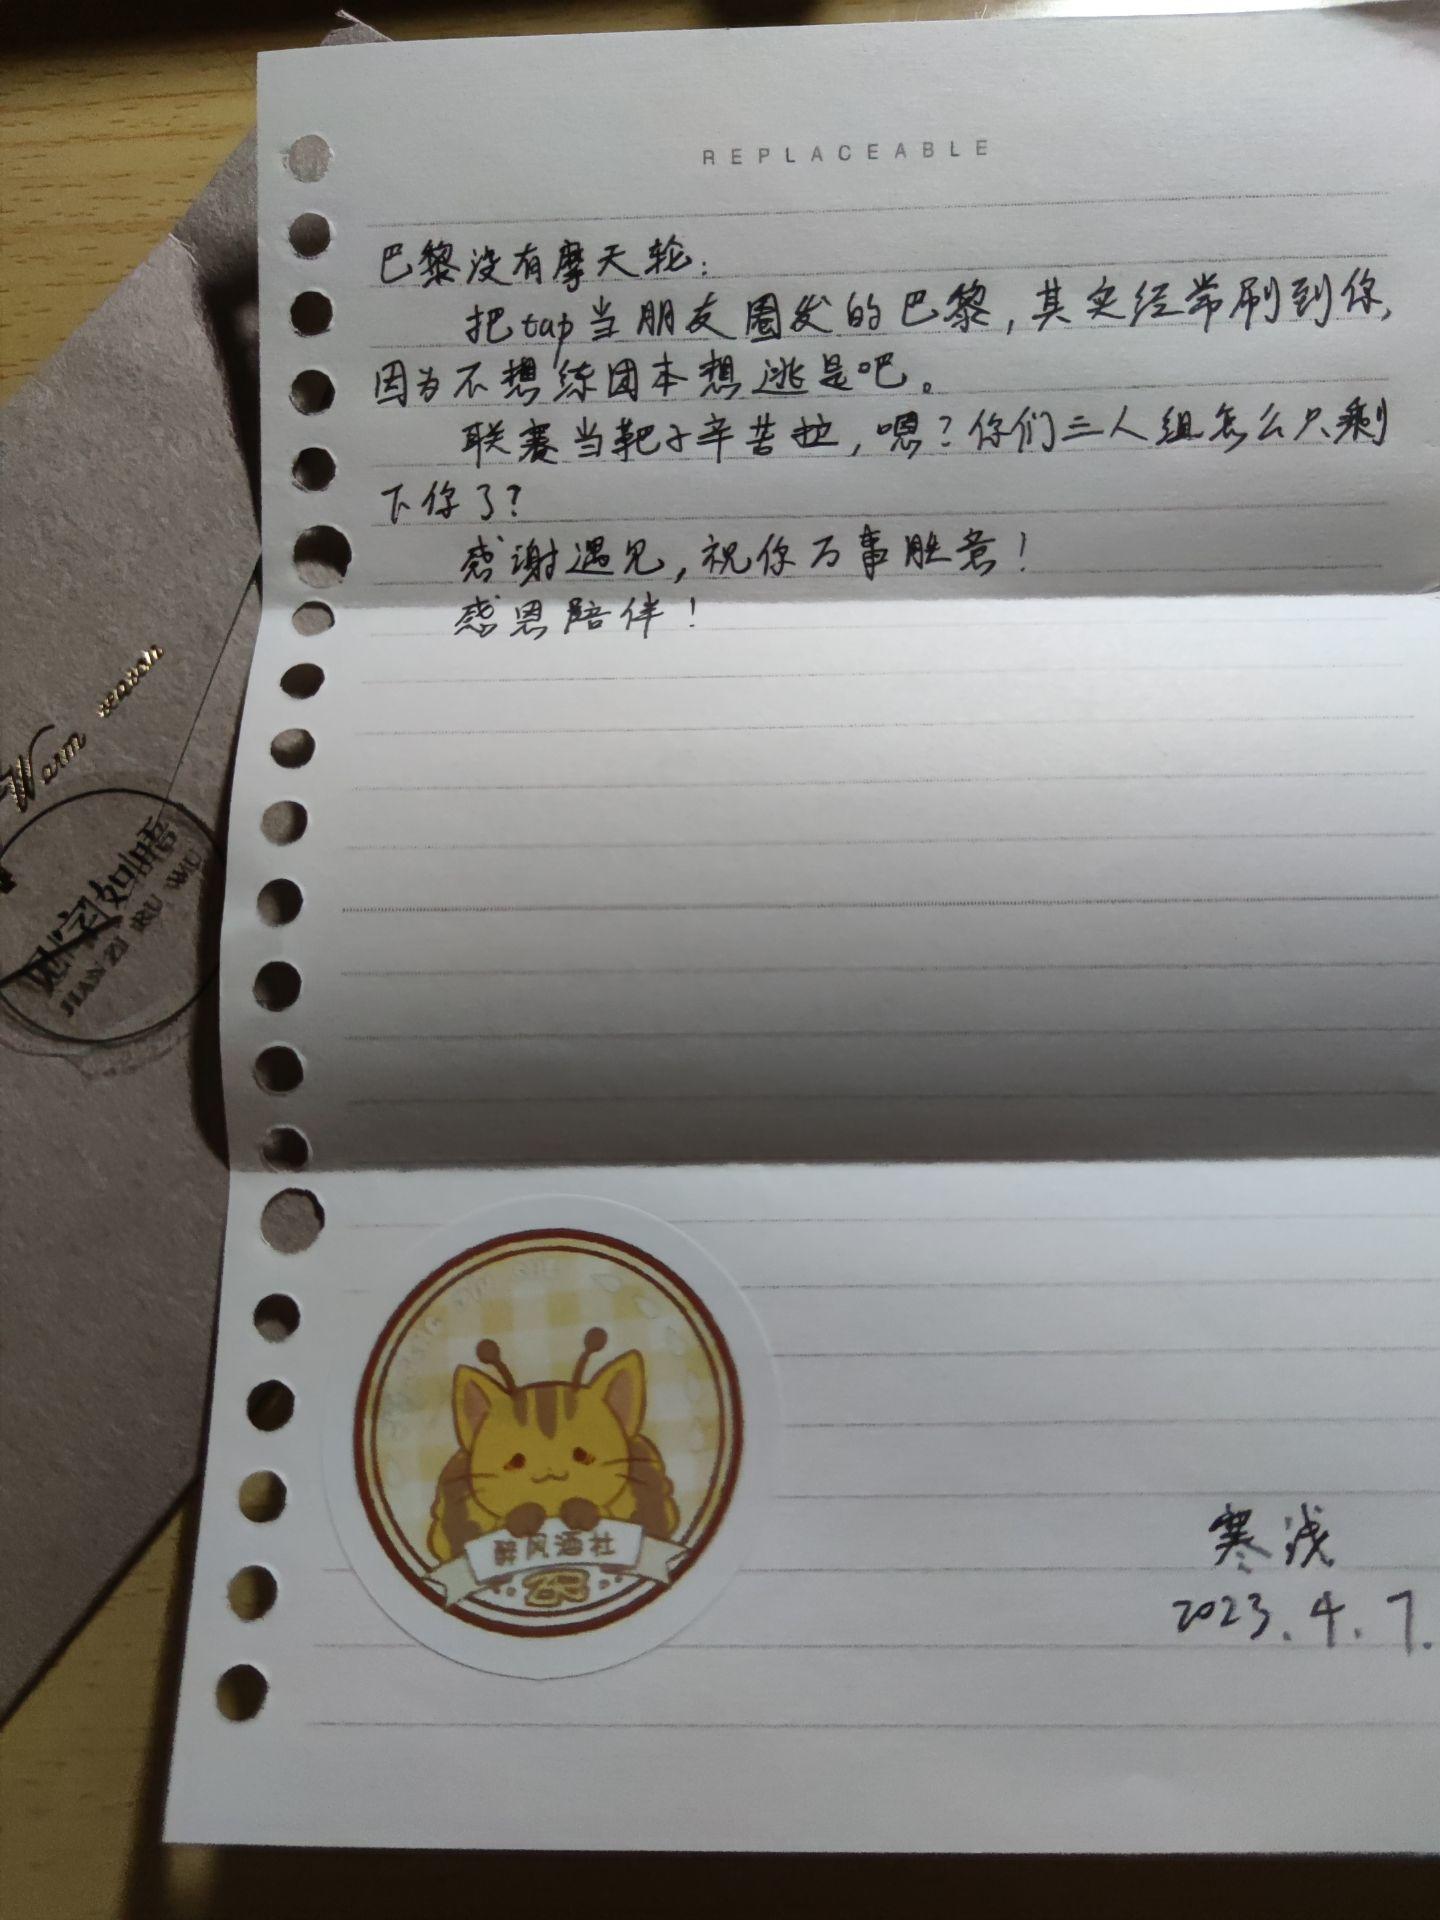 REPLACEABLE
巴黎没有摩天轮：
把tap当朋友圈发的巴黎，其实经常刷到你，
因为不想练团本想逃是吧。
联赛当靶子辛苦拉，嗯？你们三人组怎么只剩
下你了？
感谢遇见，祝你万事胜意！
感恩陪伴！
Warm
见字如晤
JIAN ZI RU WU
醉风酒社
寒浅
2023.4.7.